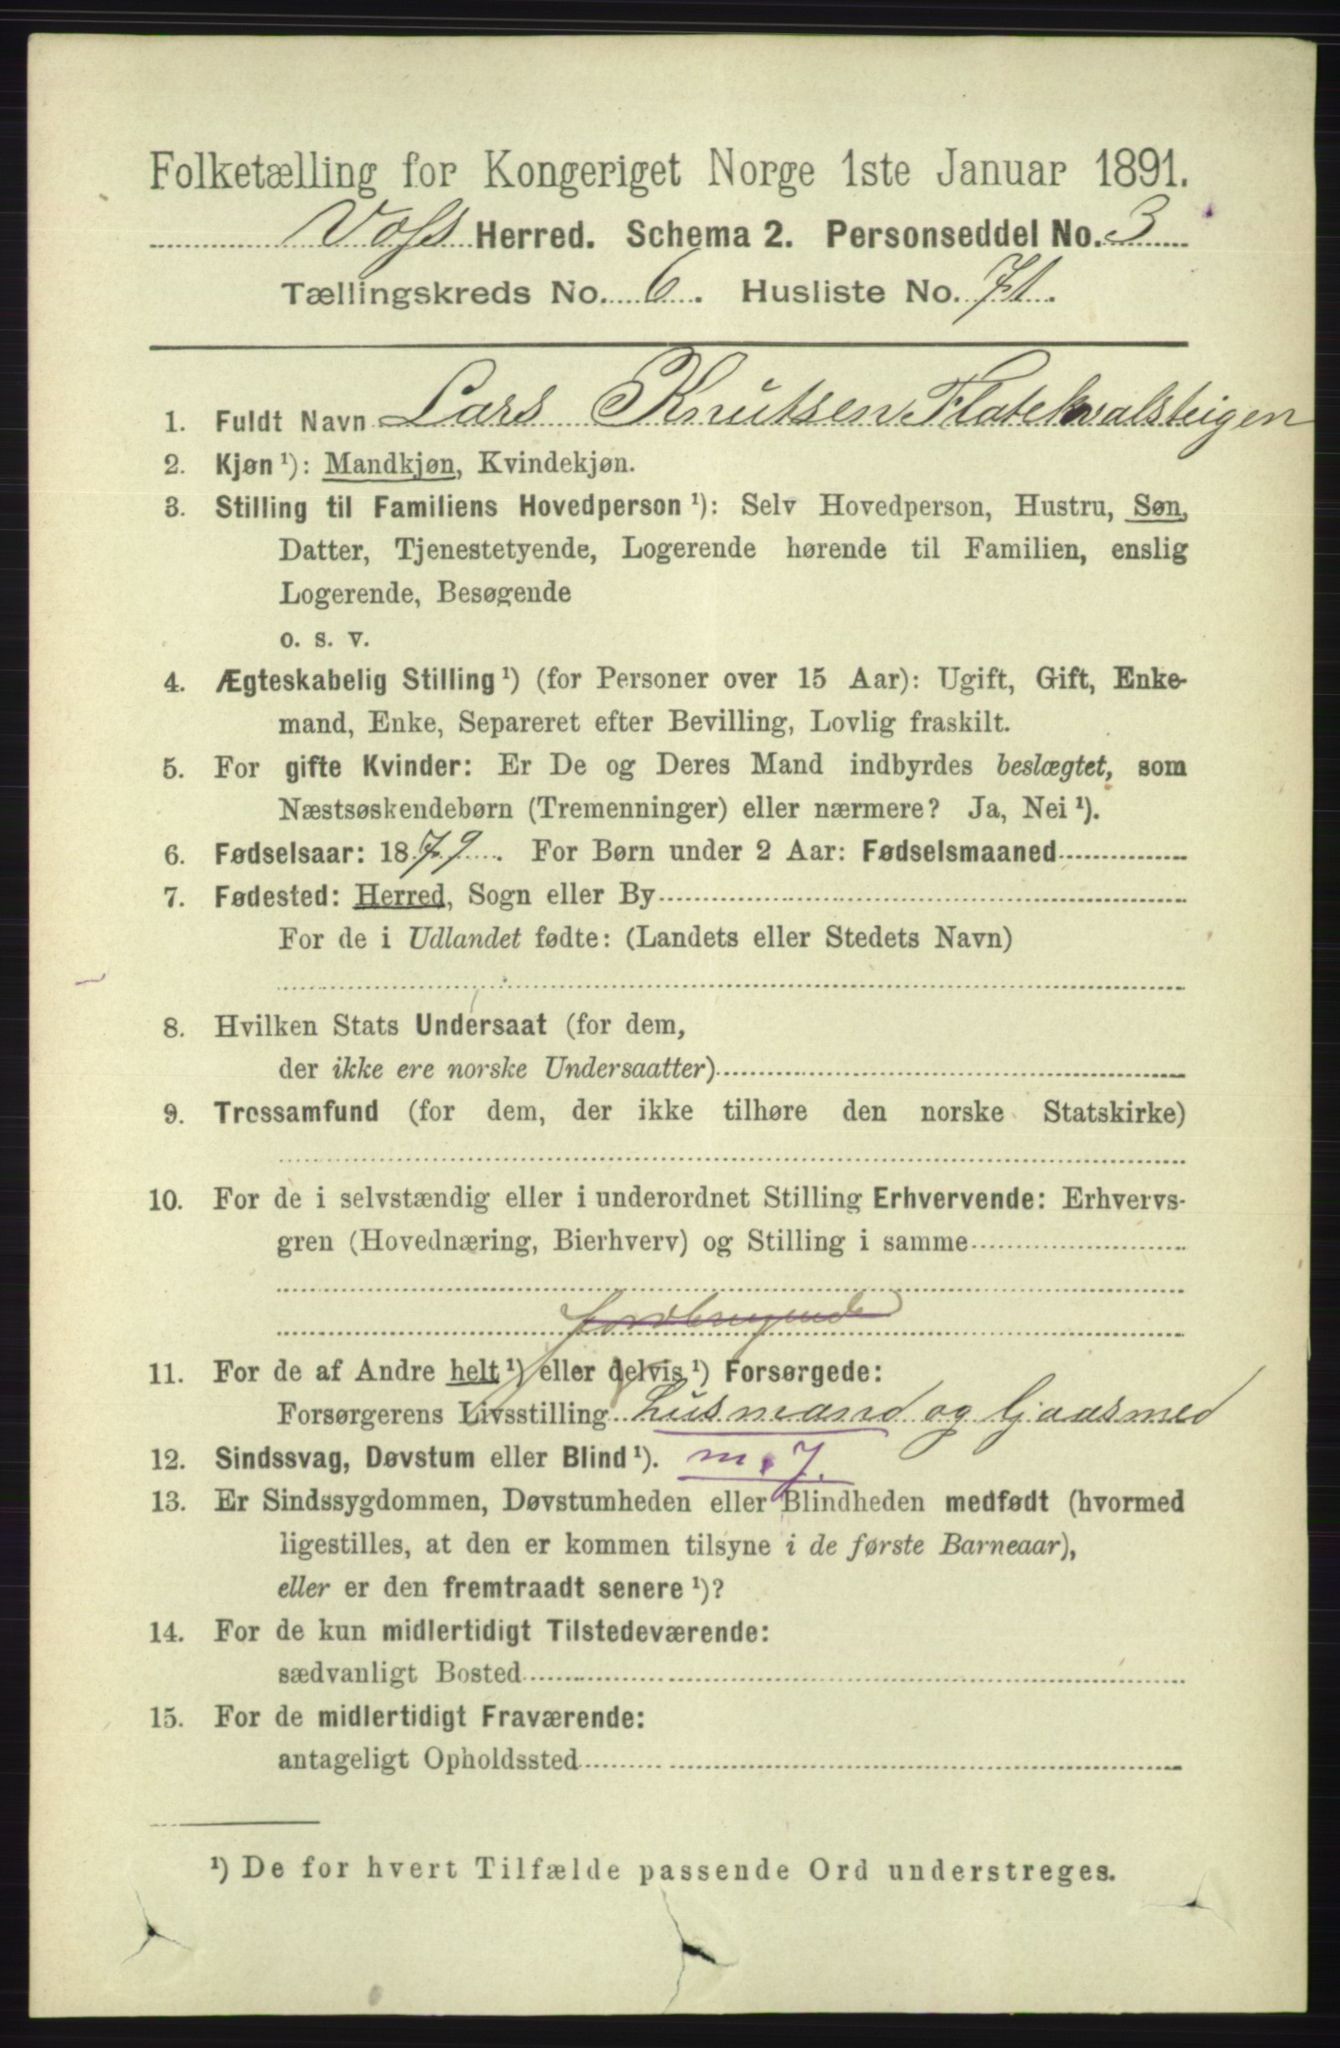 Folketælling for Kongeriget Norge 1ste Januar 1891.
Voss Herred. Schema 2. Personseddel No. 3
Tællingskreds No. 6. Husliste No. 71.
1. Fuldt Navn Lars Knutsen Flatekvalsteigen
2. Kjøn ¹): Mandkjøn, Kvindekjøn.
3. Stilling til Familiens Hovedperson ¹): Selv Hovedperson, Hustru, Søn,
Datter, Tjenestetyende, Logerende hørende til Familien, enslig
Logerende, Besøgende
o. s. v.
4. Ægteskabelig Stilling ¹) (for Personer over 15 Aar): Ugift, Gift, Enke-
mand, Enke, Separeret efter Bevilling, Lovlig fraskilt.
5. For gifte Kvinder: Er De og Deres Mand indbyrdes beslægtet, som
Næstsøskendebørn (Tremenninger) eller nærmere? Ja, Nei ¹).
6. Fødselsaar: 1879. For Børn under 2 Aar: Fødselsmaaned
7. Fødested: Herred, Sogn eller By
For de i Udlandet fødte: (Landets eller Stedets Navn)
8. Hvilken Stats Undersaat (for dem,
der ikke ere norske Undersaatter)
9. Trossamfund (for dem, der ikke tilhøre den norske Statskirke)
10. For de i selvstændig eller i underordnet Stilling Erhvervende: Erhvervs-
gren (Hovednæring, Bierhverv) og Stilling i samme
11. For de af Andre helt ¹) eller delvis ¹) Forsørgede:
Forsørgerens Livsstilling Husmand og
12. Sindssvag, Døvstum eller Blind ¹). m. 7.
13. Er Sindssygdommen, Døvstumheden eller Blindheden medfødt (hvormed
ligestilles, at den er kommen tilsyne i de første Barneaar),
eller er den fremtraadt senere ¹)?
14. For de kun midlertidigt Tilstedeværende:
sædvanligt Bosted
15. For de midlertidigt Fraværende:
antageligt Opholdssted
¹) De for hvert Tilfælde passende Ord understreges.